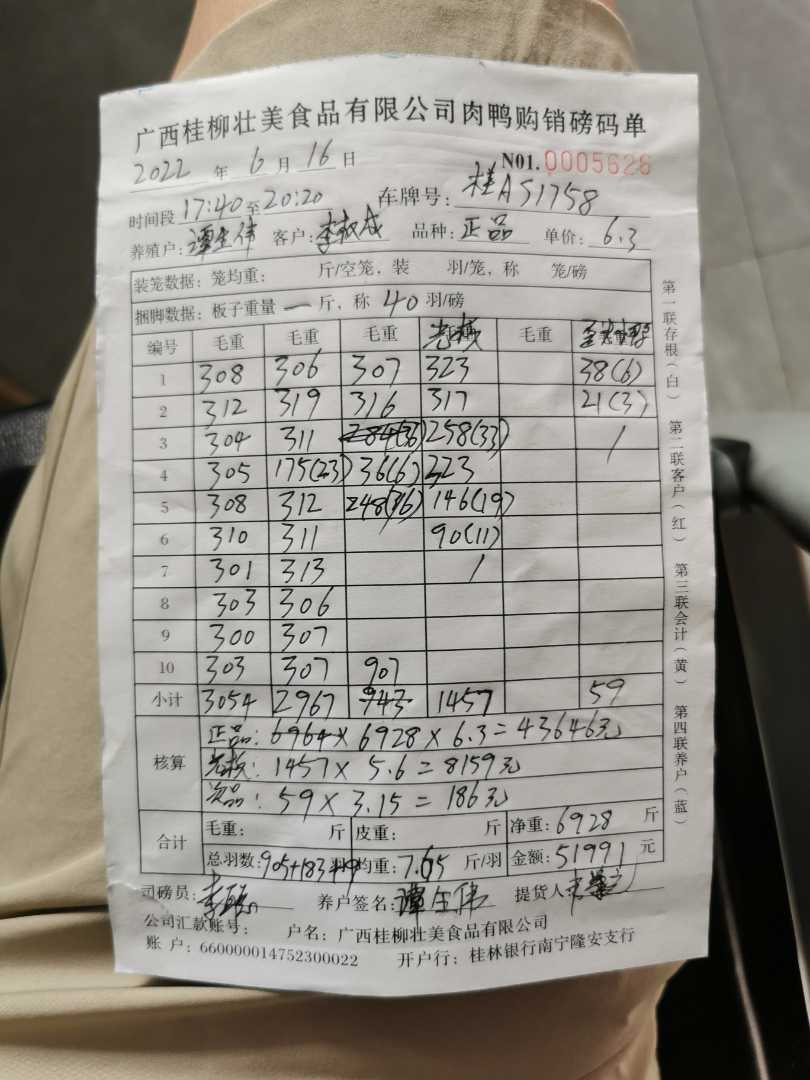 广西桂柳壮美食品有限公司肉鸭购销磅码单
2022 年 6 月 16 日 N01. 0005626
时间段 17:40 至 20:20 车牌号: 桂A51758
养殖户: 谭生伟 客户: 品种: 正品 单价: 6.3
装笼数据: 笼均重: 斤/空笼, 装 羽/笼, 称 笼/磅
捆脚数据: 板子重量 一 斤, 称 40 羽/磅
编号 毛重 毛重 毛重 光板 毛重
1 308 306 307 323 38(6)
2 312 319 316 317 21(3)
3 304 311 284(36) 258(33) /
4 305 175(23) 36(6) 323
5 308 312 248(36) 146(19)
6 310 311 90(11)
7 301 313 /
8 303 306
9 300 307
10 303 307 907
小计 3054 2967 943 1457 59
核算
正品: 6964× 6928 × 6.3 = 43646元
光板: 1457 × 5.6 = 8159元
次品: 59 × 3.15 = 186元
合计
毛重: 斤 皮重: 斤 净重: 6928 斤
总羽数: 905+183+9 羽 均重: 7.65 斤/羽 金额: 51991 元
司磅员: 养户签名: 谭生伟 提货人
公司汇款账号: 户名: 广西桂柳壮美食品有限公司
账 户: 660000014752300022 开户行: 桂林银行南宁隆安支行
第一联存根(白) 第二联客户(红) 第三联会计(黄) 第四联养户(蓝)